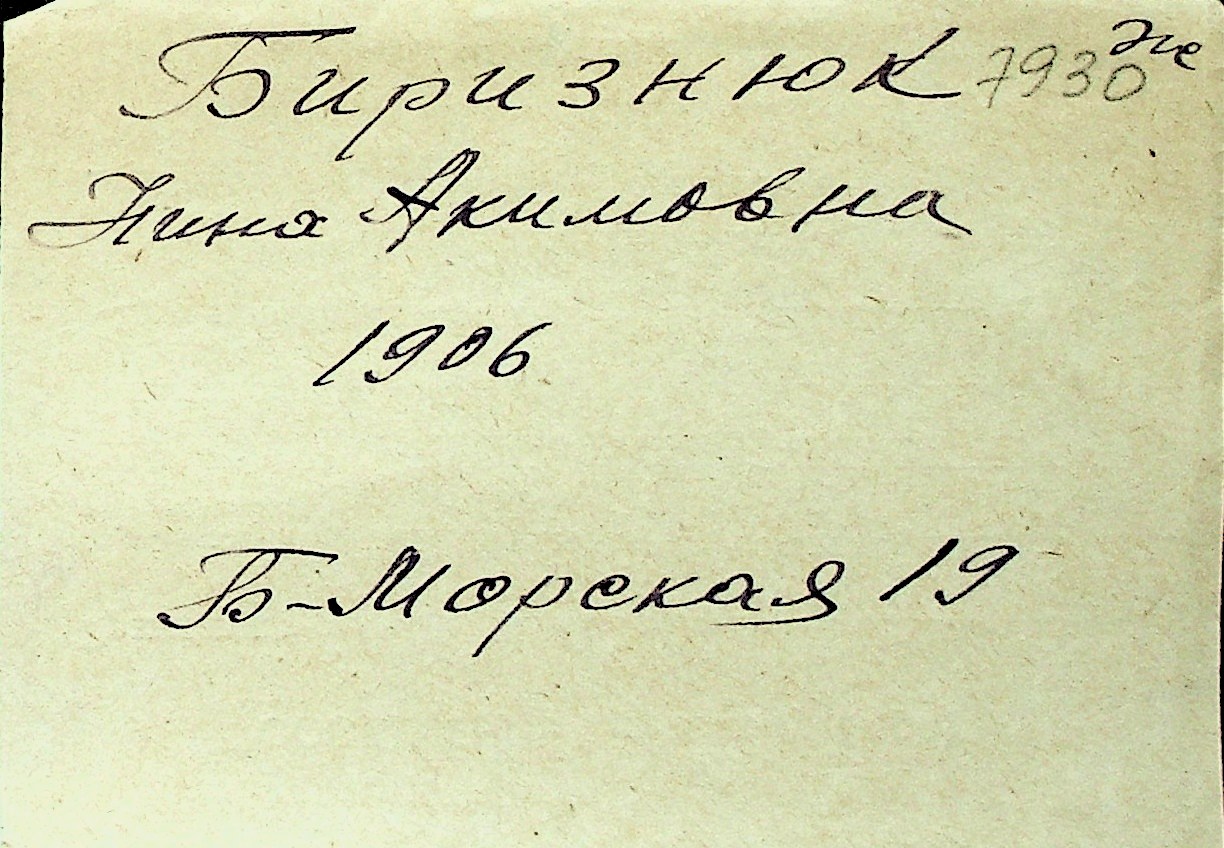 Биризнюк 7930
Нина Акимовна
1906
Б-Морская 19